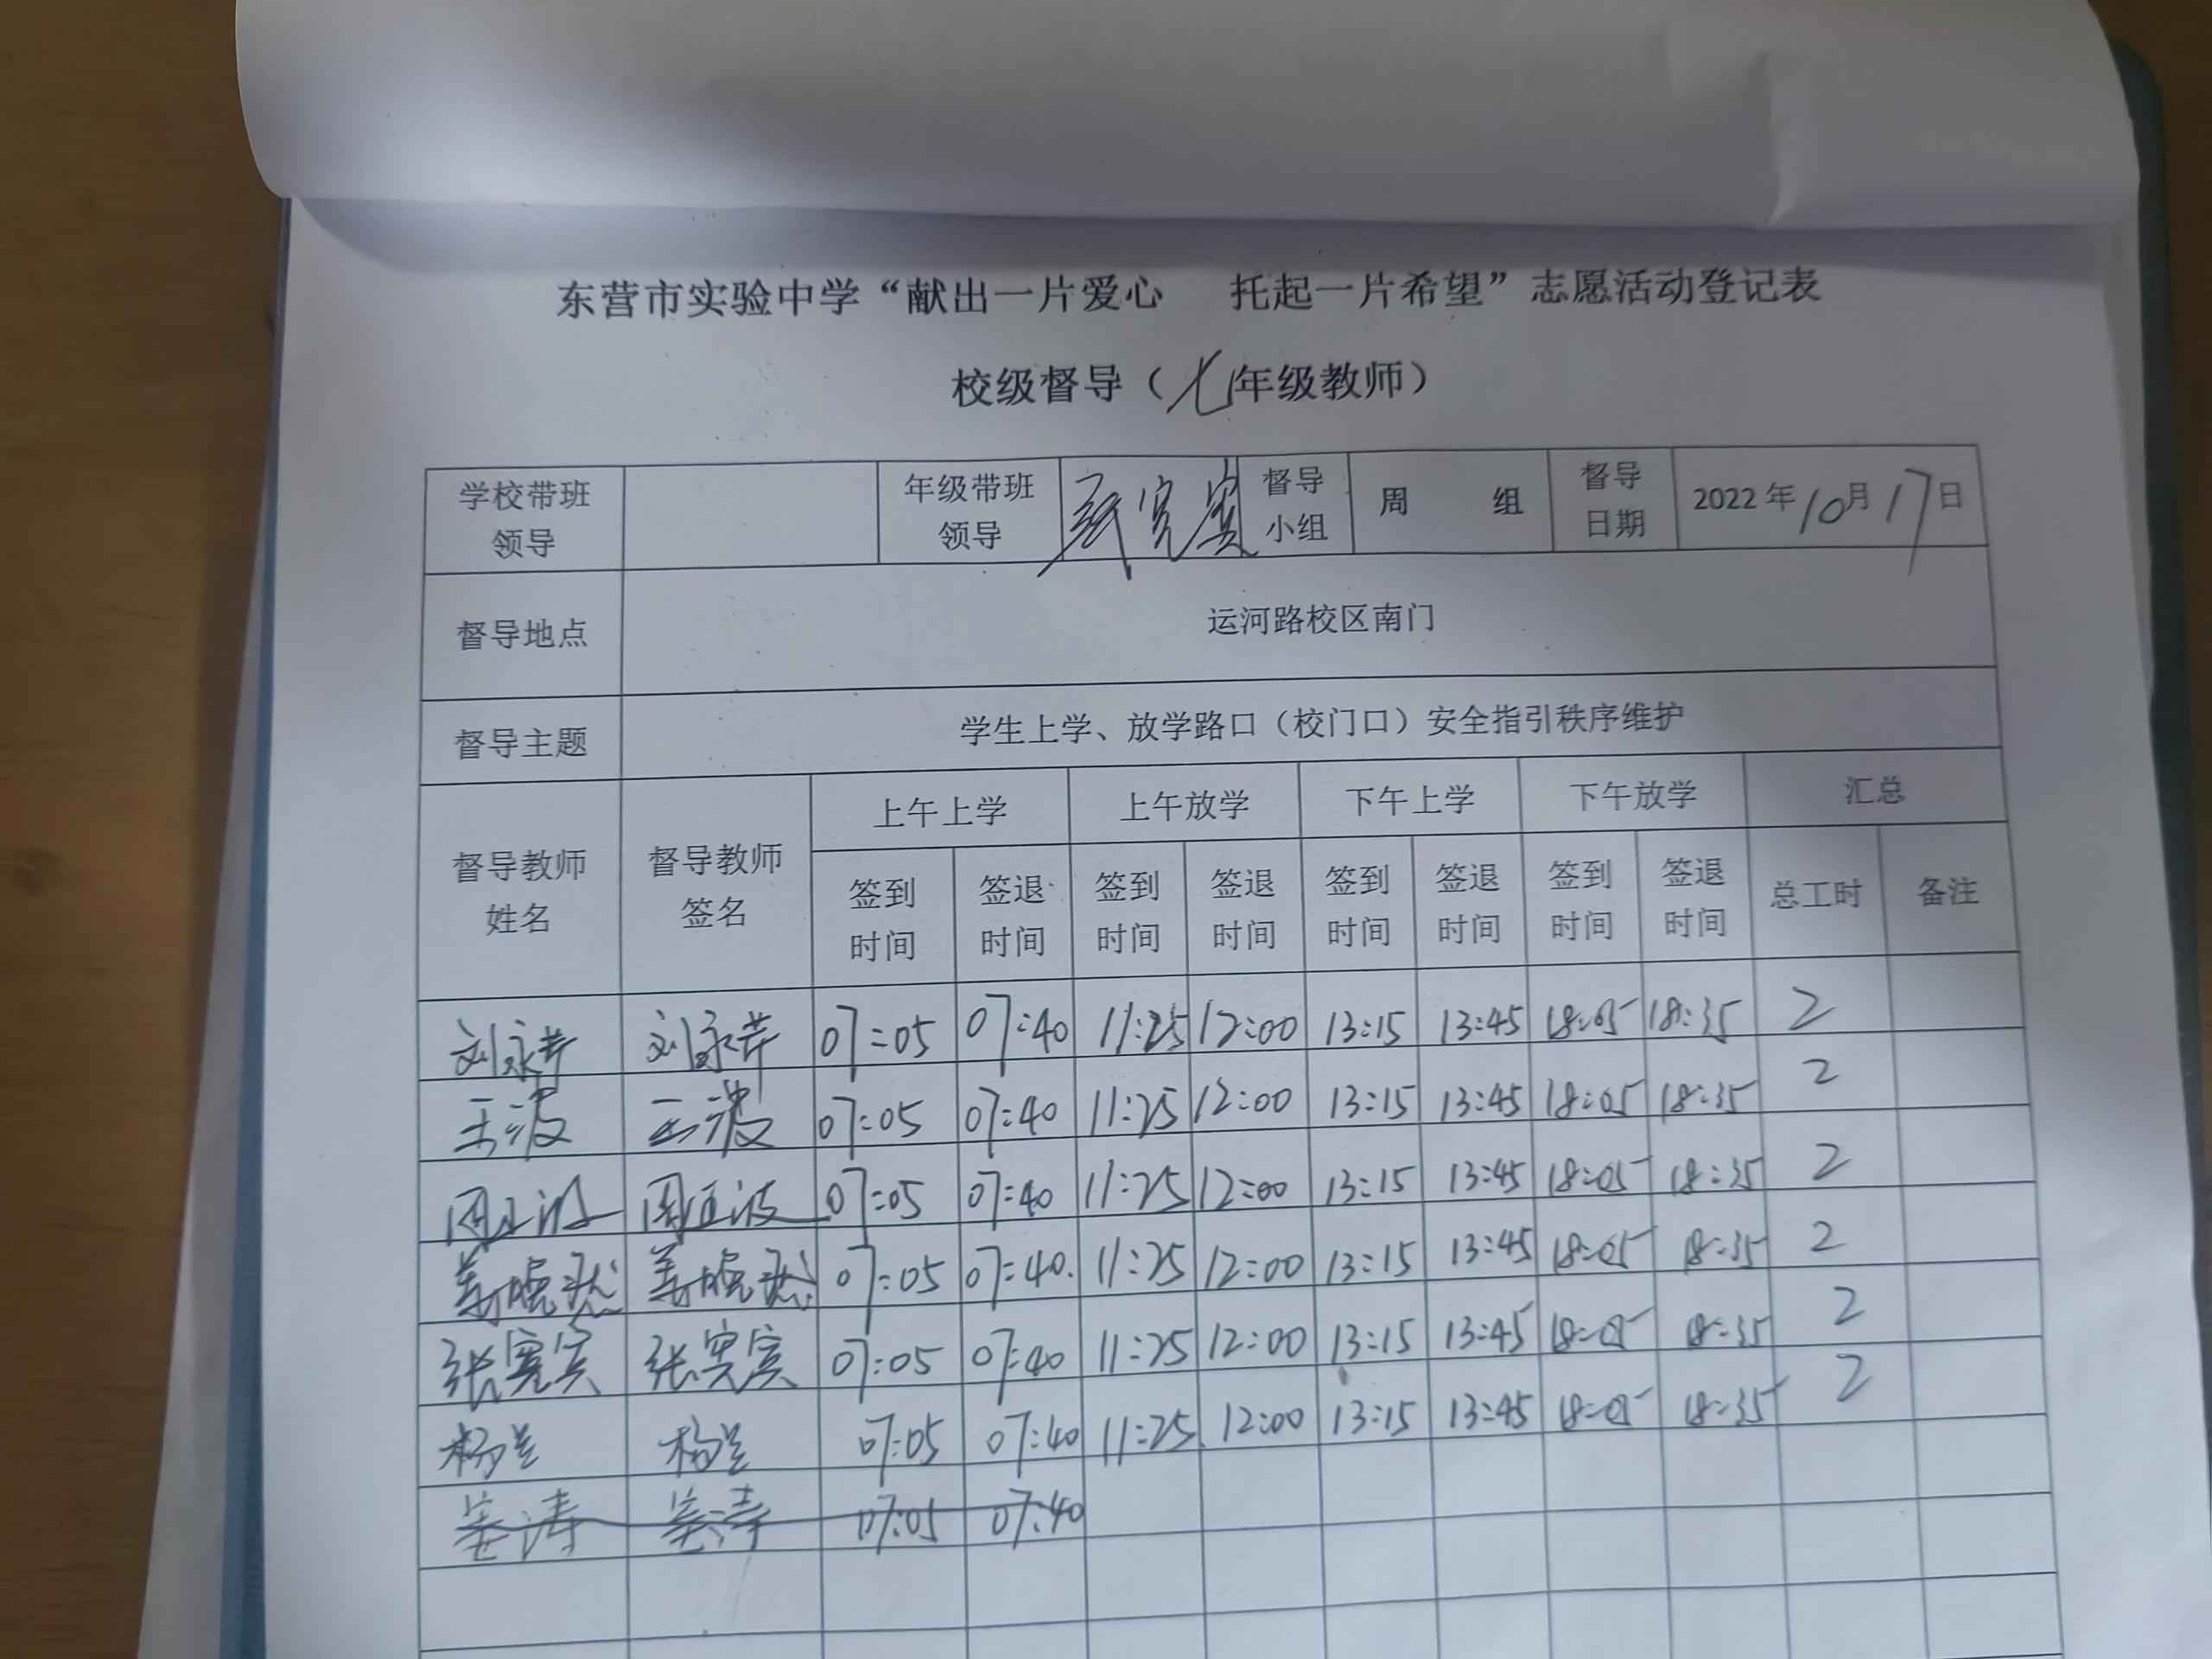 东营市实验中学“献出一片爱心 托起一片希望”志愿活动登记表
校级督导（七年级教师）
学校带班领导 年级带班领导 督导小组 周 组 督导日期 2022年10月17日
督导地点 运河路校区南门
督导主题 学生上学、放学路口（校门口）安全指引秩序维护
督导教师姓名 督导教师签名 上午上学 上午放学 下午上学 下午放学 汇总
签到时间 签退时间 签到时间 签退时间 签到时间 签退时间 签到时间 签退时间 总工时 备注
刘永芹 刘永芹 07:05 07:40 11:25 12:00 13:15 13:45 18:05 18:35 2
王波 王波 07:05 07:40 11:25 12:00 13:15 13:45 18:05 18:35 2
周正波 周正波 07:05 07:40 11:25 12:00 13:15 13:45 18:05 18:35 2
07:05 07:40 11:25 12:00 13:15 13:45 18:05 18:35 2
张宪宾 张宪宾 07:05 07:40 11:25 12:00 13:15 13:45 18:05 18:35 2
杨兰 杨兰 07:05 07:40 11:25 12:00 13:15 13:45 18:05 18:35 2
姜涛 姜涛 07:05 07:40